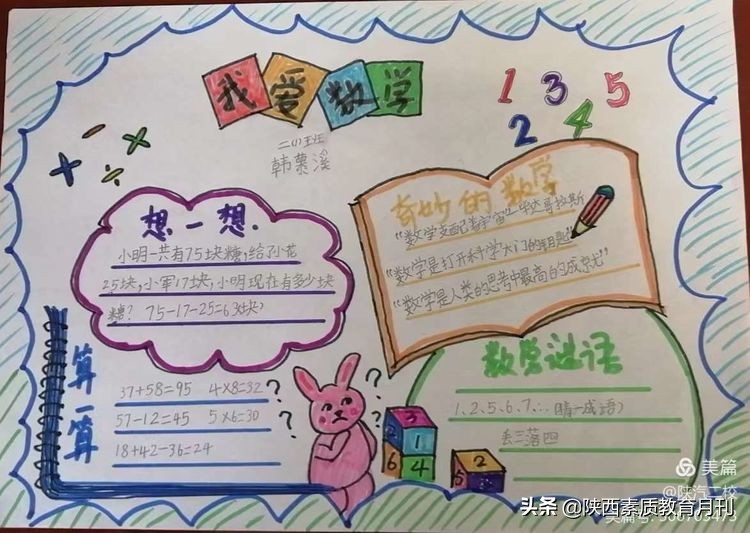 我爱数学
二(1)班
韩慕溪
1 3 5
2 4
想一想.
小明一共有75块糖,给了小花
25块,小军17块,小明现在有多少块
糖? 75-17-25=63(块)
奇妙的数学
“数学支配着宇宙”毕达哥拉斯
“数学是打开科学大门的钥匙”
“数学是人类的思考中最高的成就”
算一算
37+58=95 4×8=32
57-12=45 5×6=30
18+42-36=24
数学谜语
1、2、5、6、7、…(猜一成语)
丢三落四
3
2 1
6 4
2
5
美篇
@陕汽二校
头条 @陕西素质教育月刊